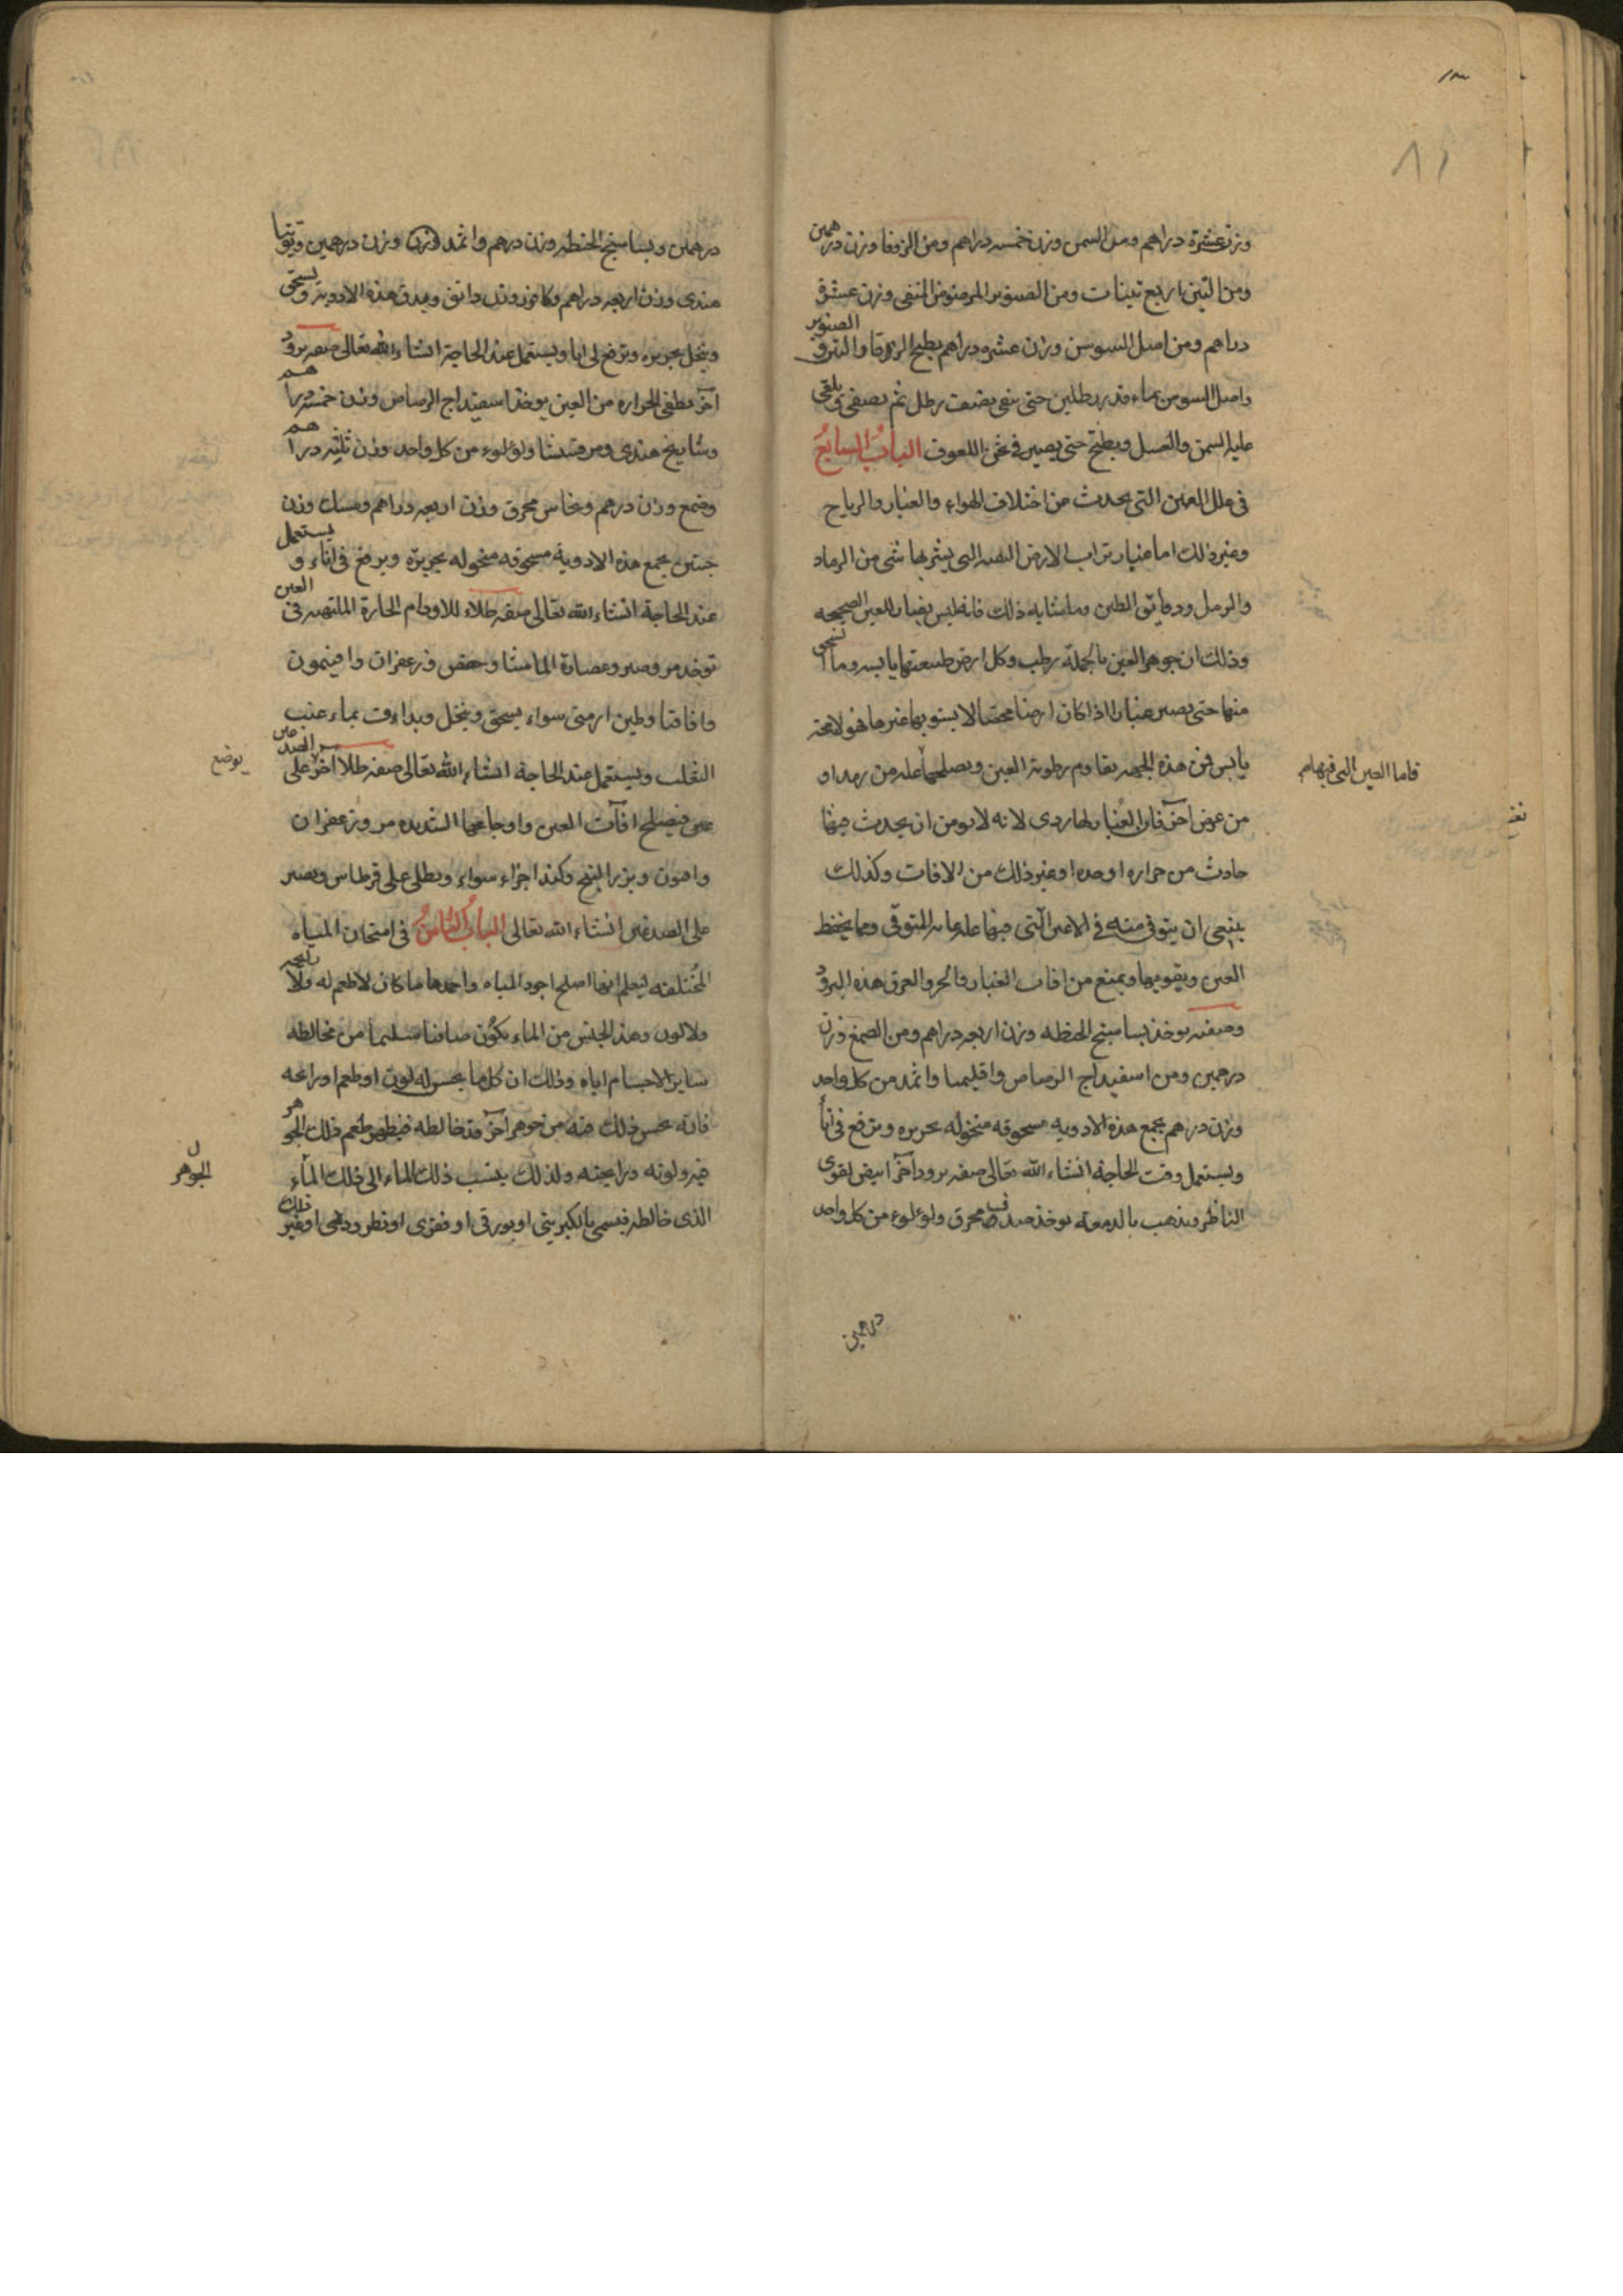 ٨١
وزن عشرة دراهم ومن السمن وزن خمسه دراهم ومن الزوفا وزن درهمين
ومن التين اربع تينات ومن الصنوبر المرضوض المنقى وزن عشرة
دراهم ومن اصل السوسن وزن عشره دراهم يطبخ الزوفا والتين و الصنوبر
واصل السوسن بماء قدر رطلين حتى يبقى نصف رطل ثم يصفى ويلقى
عليه السمن والعسل ويطبخ حتى يصير فى ثخن اللعوق الباب السابع
فى علل العين التى يحدث من اختلاف الهواء والغبار والرياح
وغير ذلك اما غبار تراب الارض التى يشربها شى من الرماد
والرمل ودقايق الطين وما شابه ذلك فانه ليس بضار للعين الصحيحه
وذلك ان جوهر العين بالجملة رطب وكل ارض طبيعتها يابسه وما انسحق
منها حتى يصير غبارا اذا كان ارضا محضا لا يشوبها غيرها فهو لا محة
يابس فمن هذه الجهه يقاوم رطوبة العين ويصلحها عله من رمد او
فاما العين التى فيها
من عرض آخر فان الغبار لها ردى لانه لا يومن ان يحدث فيها
حادث من حراره او حده او غير ذلك من الافات وكذلك
ينبغى ان يتوقى منه فى الاعين التى فيها عله غايه التوقى ومما يحفظ
العين ويقويها ويمنع من افات الغبار والحر والعرق هذه البرود
وصفته يوخذ بساسنج الحنطه وزن اربعه دراهم ومن الصمغ وزن
درهمين ومن اسفيداج الرصاص واقليميا واثمد من كل واحد
وزن درهم يجمع هذه الادويه مسحوقه منخوله بحريره وترفع فى انا
ويستعمل وقت الحاجة انشاء الله تعالى صفه برود آخر ابيض لقوى
الناظر ويذهب بالدمعه يوخذ صدف محرق ولولوء من كل واحد
درهمين
درهمين وبساسنج الحنطه وزن درهم واثمد وزن وزن درهمين وتوتيا
هندى وزن اربعه دراهم وكافور وزن دانق ويدق هذه الادويه ويسحق
وينخل بحريره وترفع فى انا ويستعمل عند الحاجة انشاء الله تعالى صفه برود
آخر يطفى الحراره من العين يوخذ اسفيداج الرصاص وزن خمسه دراهم
وشايخ هندى ومرقشيشا ولولوء من كل واحد وزن ثلثه دراهم
وصمغ وزن درهم ونحاس محرق وزن اربعه دراهم ومسك وزن
حبتين يجمع هذه الادوية مسحوقه منخوله بحريرة ويرفع فى اناء و يستعمل
عند الحاجة انشاء الله تعالى صفه طلاء للاورام الحارة الملتهبه فى العين
توخذ مر وصبر وعصارة الماميثا وحضض وزعفران وافيمون
واقاقيا وطين ارمنى سواء يسحق وينخل ويداف بماء عنب
الثعلب ويستعمل عند الحاجة انشاء الله تعالى صفه طلا اخر على الصدغين
يوضع
فيصلح افآت العين واوجاعها الشديده مر وزعفران
وافيون وبزر البنج وكندر اجزاء سواء ويطلى على قرطاس ويصير
على الصدغين انشاء الله تعالى الباب الثامن فى امتحان المياه
المختلفه ليعلم ايها اصلح اجود المياه واحمدها ما كان لا طعم له ولا رايحه
ولا لون وهذ الجنس من الماء يكون صافيا سليما من مخالطه
ساير الاجسام اياه وذلك ان كل ما يحس له لون او طعم او رايحه
فانه يحس ذلك منه من جوهر آخر قد خالطه فيظهر طعم ذلك الجوهر
فيه ولونه ورايحته ولذلك ينسب ذلك الماء الى ذلك الماء
الجوهر
الذى خالطه فيسمى بالكبريتى او بورقى او قفرى او نطرودنى او غير ذلك